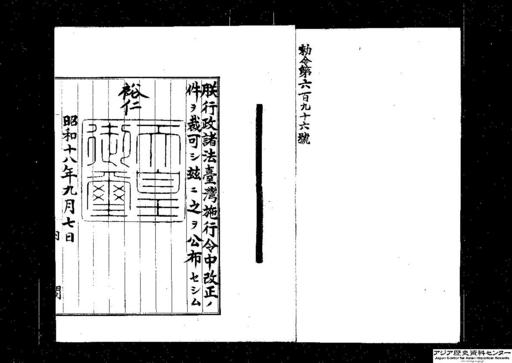 勅令第六百九十六號
朕行政諸法臺灣施行令中改正ノ
件ヲ裁可シ玆ニ之ヲ公布セシム
裕仁
天皇
御璽
昭和十八年九月七日
内閣
アジア歴史資料センター
Japan Center for Asian Historical Records